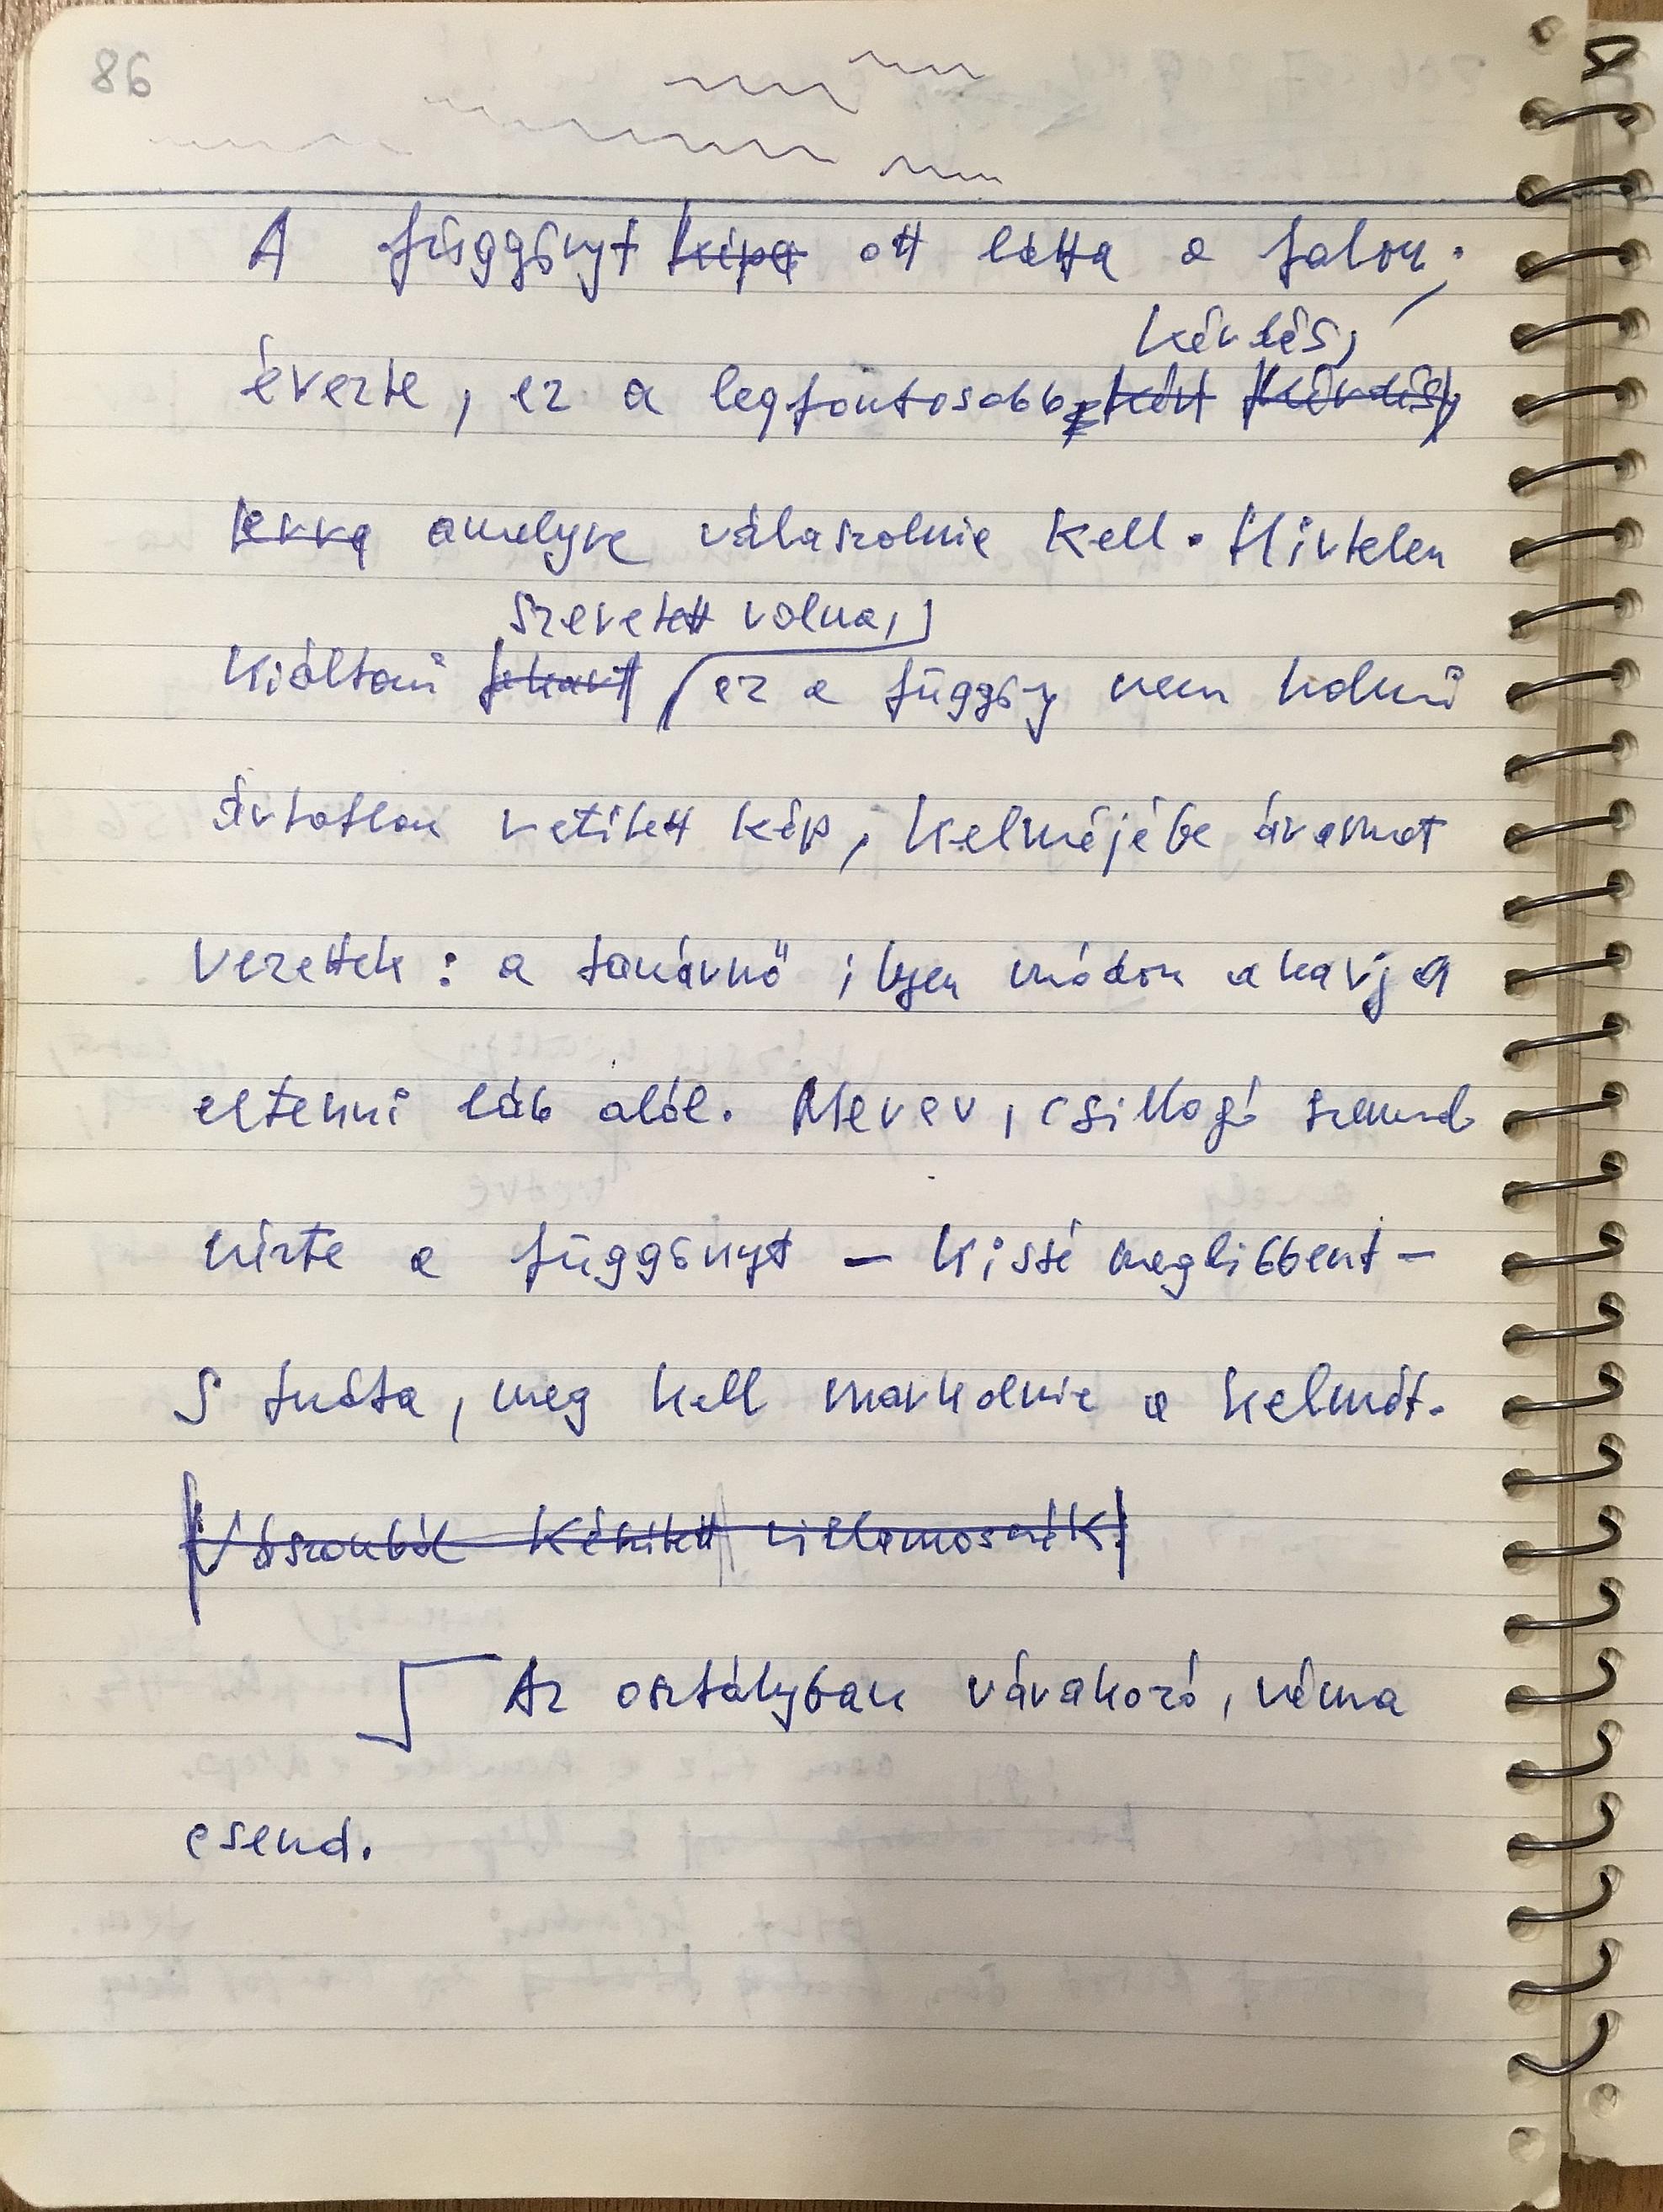 86
A függönyt képe ott látta a falon;
kérdés,
érezte, ez a legfontosabb kért kérdés,
erre amelyre válaszolnia kell. Hirtelen
szeretett volna,
kiáltani akart ez a függöny nem holmi
ártatlan vetített kép, kelméjébe áramot
vezettek: a tanárnő ilyen módon akarja
eltenni láb alól. Merev, csillogó szemmel
nézte a függönyt – kissé meglibbent –
s tudta, meg kell markolnia a kelmét.
Vászonból készített villamosszék.
Az osztályban várakozó, néma
csend.